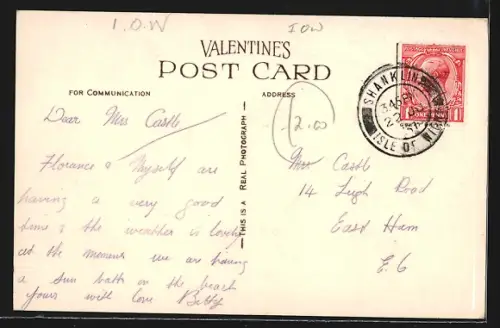 I.O.W
IOW
VALENTINE'S
POST CARD
FOR COMMUNICATION
ADDRESS
THIS IS A REAL PHOTOGRAPH
SHANKLIN
3.45 PM
ISLE OF WIGHT
ONE PENNY
Dear Mrs Castle
Florance & Myself are
having a very good
time & the weather is lovely
at the moment we are having
a sun bath on the beach
yours with love Betty
2.00
Mrs Castle
14 Leigh Road
East Ham
E.6